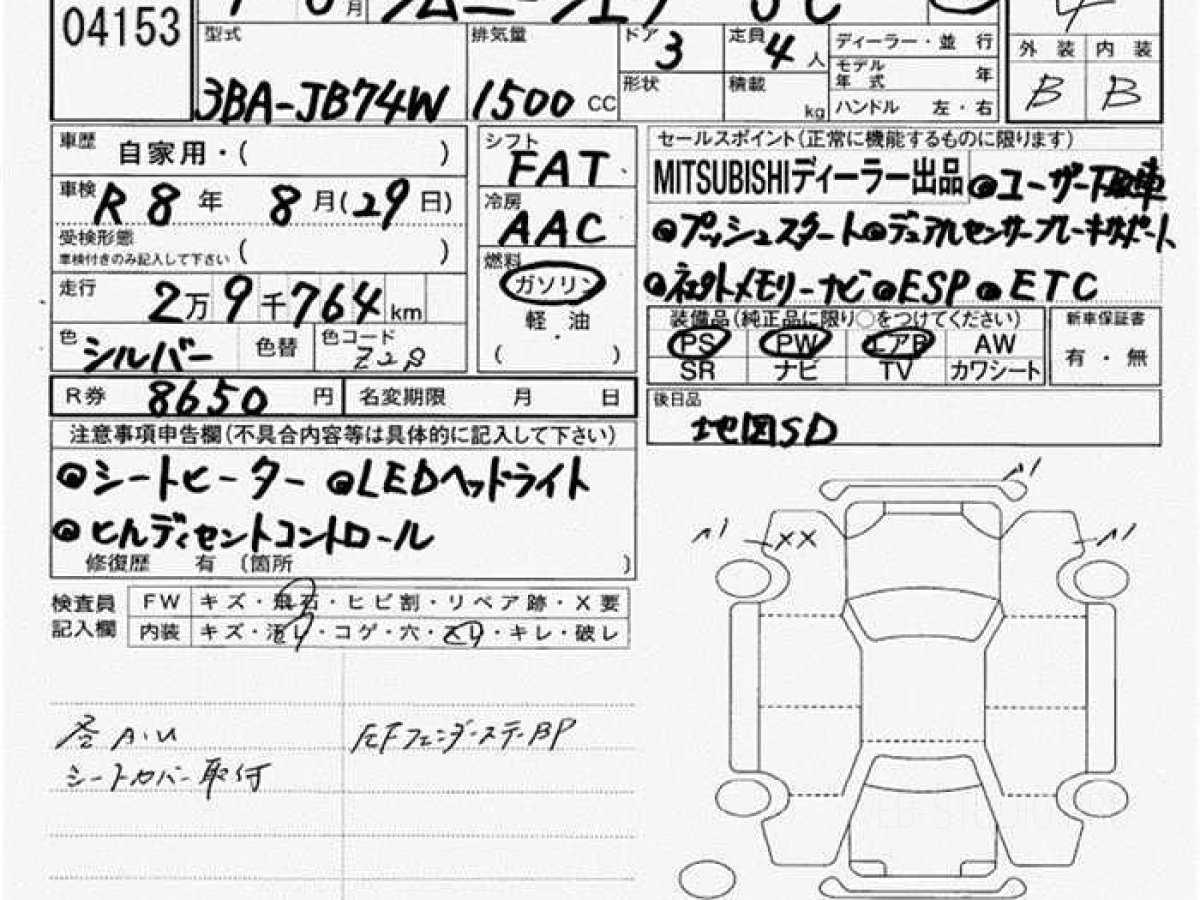 04153
月 ジムニーシエラ JC 4
型式 3BA-JB74W 排気量 1500 CC
ドア 3 定員 4 人 形状 積載 kg
ディーラー・並 行
モデル年式 年
ハンドル 左・右
外 装 内 装
B B
車歴 自家用・( )
車検 R 8 年 8 月(29日)
受検形態 車検付きのみ記入して下さい ( )
走行 2万9千764km
色 シルバー 色替 色コード Z2S
シフト FAT
冷房 AAC
燃料 ガソリン
軽・油
( )
セールスポイント(正常に機能するものに限ります)
MITSUBISHIディーラー出品 ◎ユーザー下取車
◎プッシュスタート◎デュアルセンサーブレーキサポート
◎ネクストメモリーナビ◎ESP◎ETC
装備品(純正品に限り〇をつけてください)
PS PW エアB AW
SR ナビ TV カワシート
新車保証書
有・無
R券 8650 円 名変期限 月 日
後日品
地図SD
注意事項申告欄(不具合内容等は具体的に記入して下さい)
◎シートヒーター ◎LEDヘッドライト
◎ヒルディセントコントロール
修復歴 有 (箇所 )
検査員記入欄
FW キズ・飛石・ヒビ割・リペア跡・X要
内装 キズ・汚レ・コゲ・穴・スレ・キレ・破レ
A・U
シートカバー取付
左Fフェンダーステー BP
XX